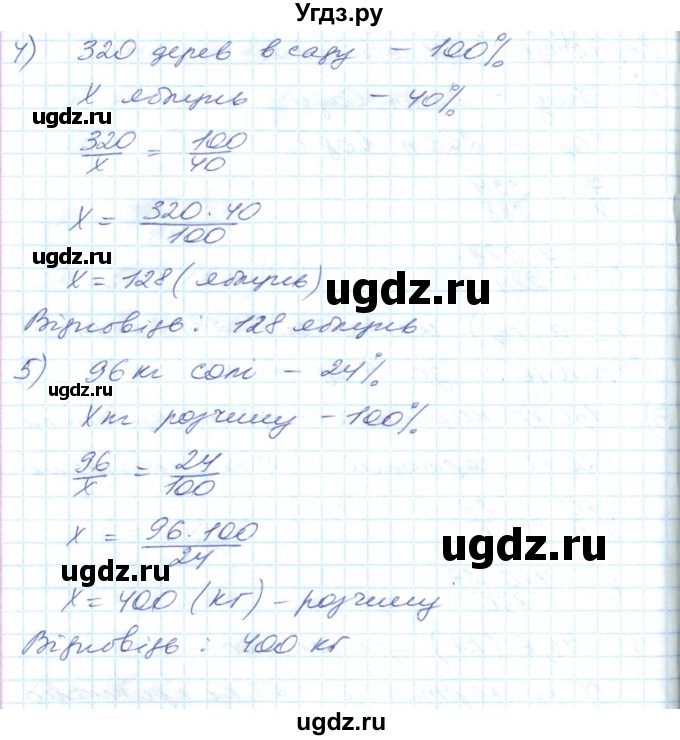 Угдз.ру
4) 320 дерев в саду – 100%
X яблунь – 40%
320/x = 100/40
X = 320·40/100
X = 128 (яблунь)
Відповідь: 128 яблунь
5) 96 кг солі – 24%
X кг розчину – 100%
96/x = 24/100
X = 96·100/24
X = 400 (кг) – розчину
Відповідь: 400 кг
ugdz.ru
ugdz.ru
ugdz.ru
ugdz.ru
ugdz.ru
ugdz.ru
ugdz.ru
ugdz.ru